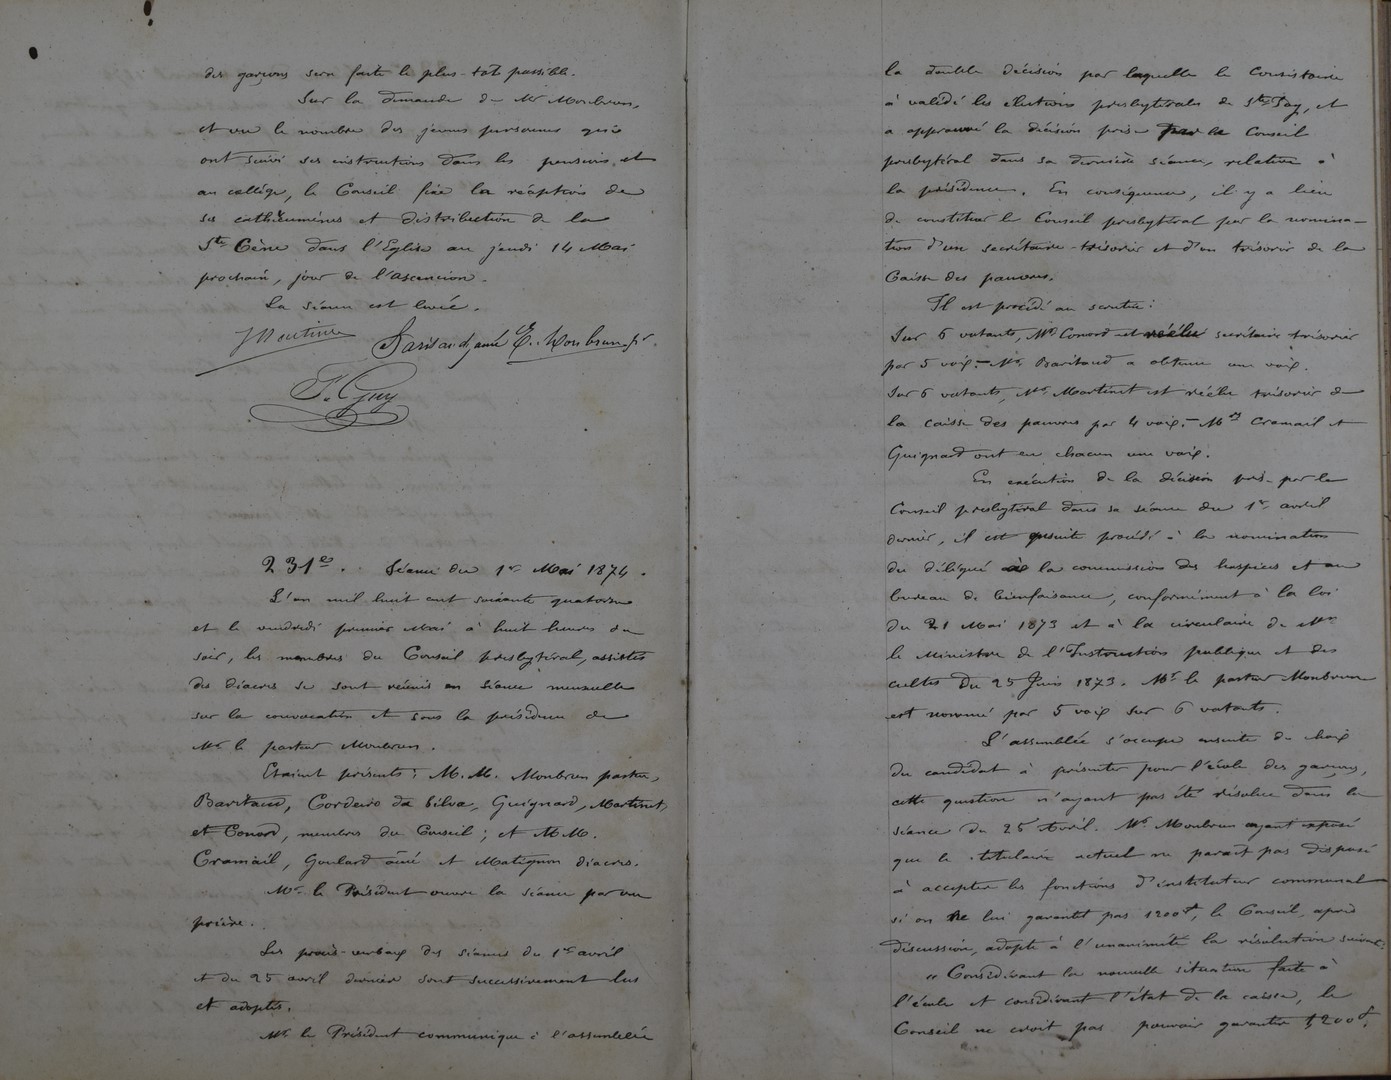 des garçons sera faite le plus-tôt possible.
Sur la demande de Mr Monbrun,
et vu le nombre des jeunes personnes qui
ont suivi ses instructions dans les pensions et
au collège, le Conseil fixe la réception de
ses cathécumènes et distribution de la
Ste Cène dans l'Eglise au jeudi 14 Mai
prochain, jour de l'ascencion.
La séance est levée.
JMartinet Baritaud, ainé E. Monbrun, pr
P. Guy
231e. Séance du 1er Mai 1874.
L'an mil huit cent soixante quatorze
et le vendredi premier Mai à huit heures du
soir, les membres du Conseil presbytéral, assistés
des diacres se sont réunis en séance mensuelle
sur la convocation et sous la présidence de
Mr le pasteur Monbrun.
Etaient présents : M.M. Monbrun pasteur,
Baritaud, Cordeiro da Silva, Guignard, Martinet,
et Conord, membres du Conseil ; et M.M.
Cramail, Goulard aîné et Matignon diacres.
Mr le Président ouvre la séance par une
prière.
Les procès-verbaux des séances du 1er avril
et du 25 avril dernier sont successivement lus
et adoptés.
Mr le Président communique à l'assemblée
la double décision par laquelle le Consistoire
a validé les élections presbytérales de Ste-Foy, et
a approuvé la décision prise par le Conseil
presbytéral dans sa dernière séance, relative à
la présidence. En conséquence, il y a lieu
de constituer le Conseil presbytéral par la nomina-
tion d'un secrétaire-trésorier et d'un trésorier de la
Caisse des pauvres.
Il est procédé au scrutin :
Sur 6 votants, Mr Conord est réélu secrétaire trésorier
par 5 voix. - Mr Baritaud a obtenu une voix.
Sur 6 votants, Mr Martinet est réélu trésorier de
la caisse des pauvres par 4 voix. - Mrs Cramail et
Guignard ont eu chacun une voix.
En exécution de la décision prise par le
Conseil presbytéral dans sa séance du 1er avril
dernier, il est ensuite procédé à la nomination
du délégué à la commission des hospices et au
bureau de bienfaisance, conformément à la loi
du 21 Mai 1873 et à la circulaire de Mr
le Ministre de l'Instruction publique et des
cultes du 25 Juin 1873. Mr le pasteur Monbrun
est nommé par 5 voix sur 6 votants.
L'assemblée s'occupe ensuite du choix
du candidat à présenter pour l'école des garçons,
cette question n'ayant pas été résolue dans la
séance du 25 Avril. Mr Monbrun ayant exposé
que le titulaire actuel ne paraît pas disposé
à accepter les fonctions d'instituteur communal
si on ne lui garantit pas 1200f, le Conseil, après
discussion, adopte à l'unanimité la résolution suivante :
« Considérant la nouvelle situation faite à
l'école et considérant l'état de la caisse, le
Conseil ne croit pas pouvoir garantir 1200f,